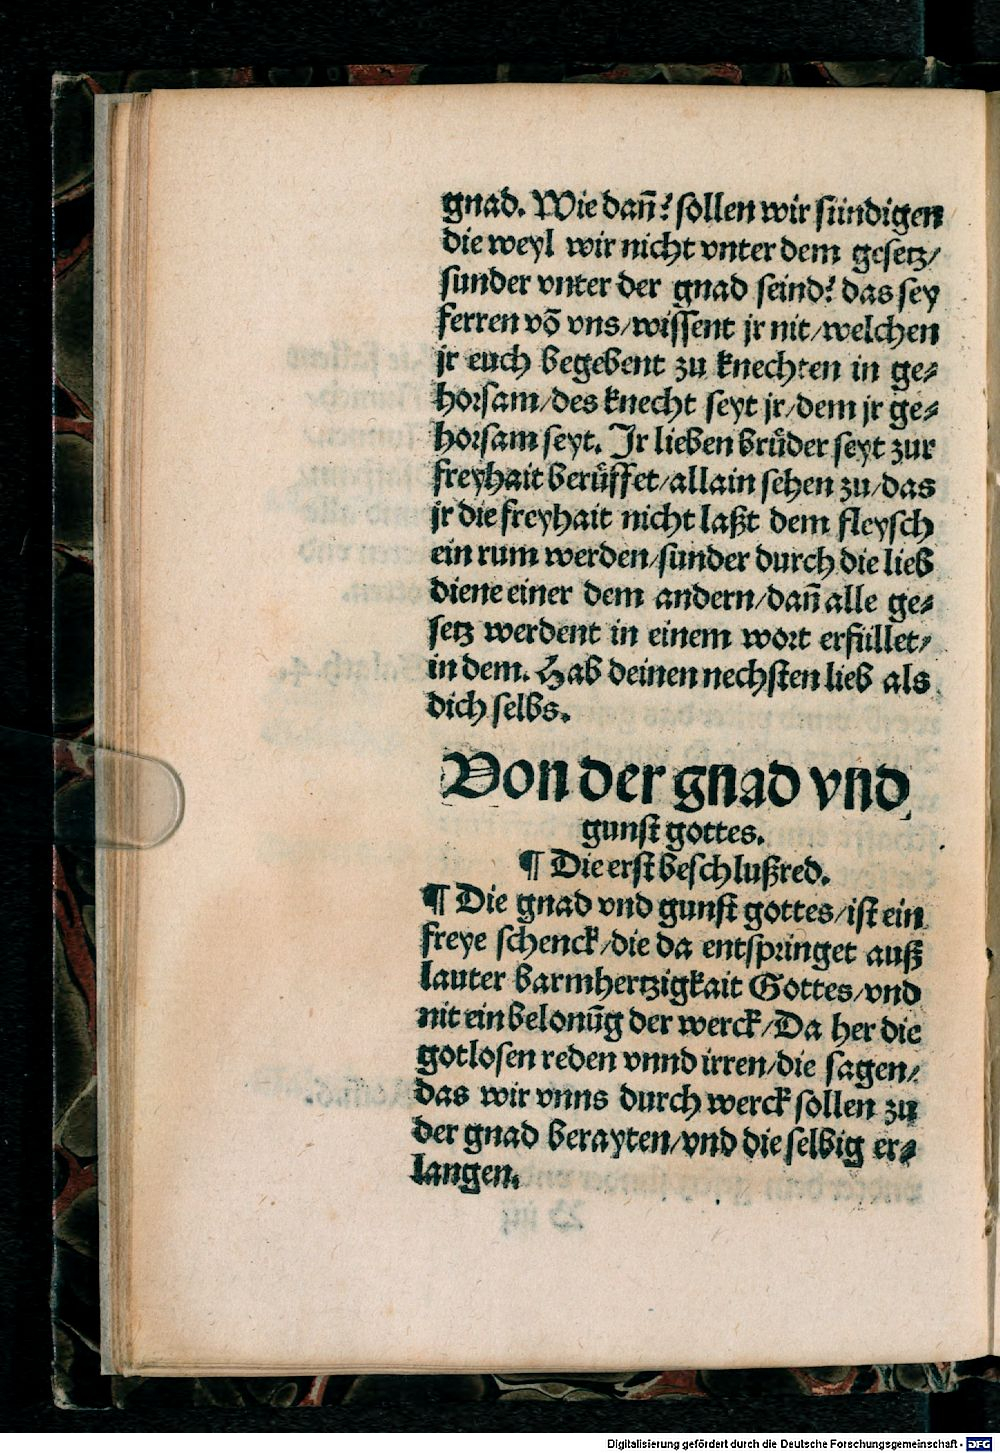 gnad. Wie dañ? sollen wir sündigen
die weyl wir nicht vnter dem gesetz/
sunder vnter der gnad seind? das sey
ferren võ vns/wissent jr nit/welchen
jr euch begebent zu knechten in ge⸗
horsam/des knecht seyt jr/dem jr ge⸗
horsam seyt. Jr lieben brůder seyt zur
freyhait berůffet/allain sehen zu/das
jr die freyhait nicht laßt dem fleysch
ein rum werden/sunder durch die lieb
diene einer dem andern/dañ alle ge⸗
setz werdent in einem wort erfüllet/
in dem. Hab deinen nechsten lieb als
dich selbs.
Von der gnad vnd
gunst gottes.
¶ Die erst beschlußred.
¶ Die gnad vnd gunst gottes/ist ein
freye schenck/die da entspringet auß
lauter barmhertzigkait Gottes/vnd
nit ein belonũg der werck/Da her die
gotlosen reden vnnd irren/die sagen/
das wir vnns durch werck sollen zu
der gnad berayten/vnd die selbig er⸗
langen.
Digitalisierung gefördert durch die Deutsche Forschungsgemeinschaft - DFG